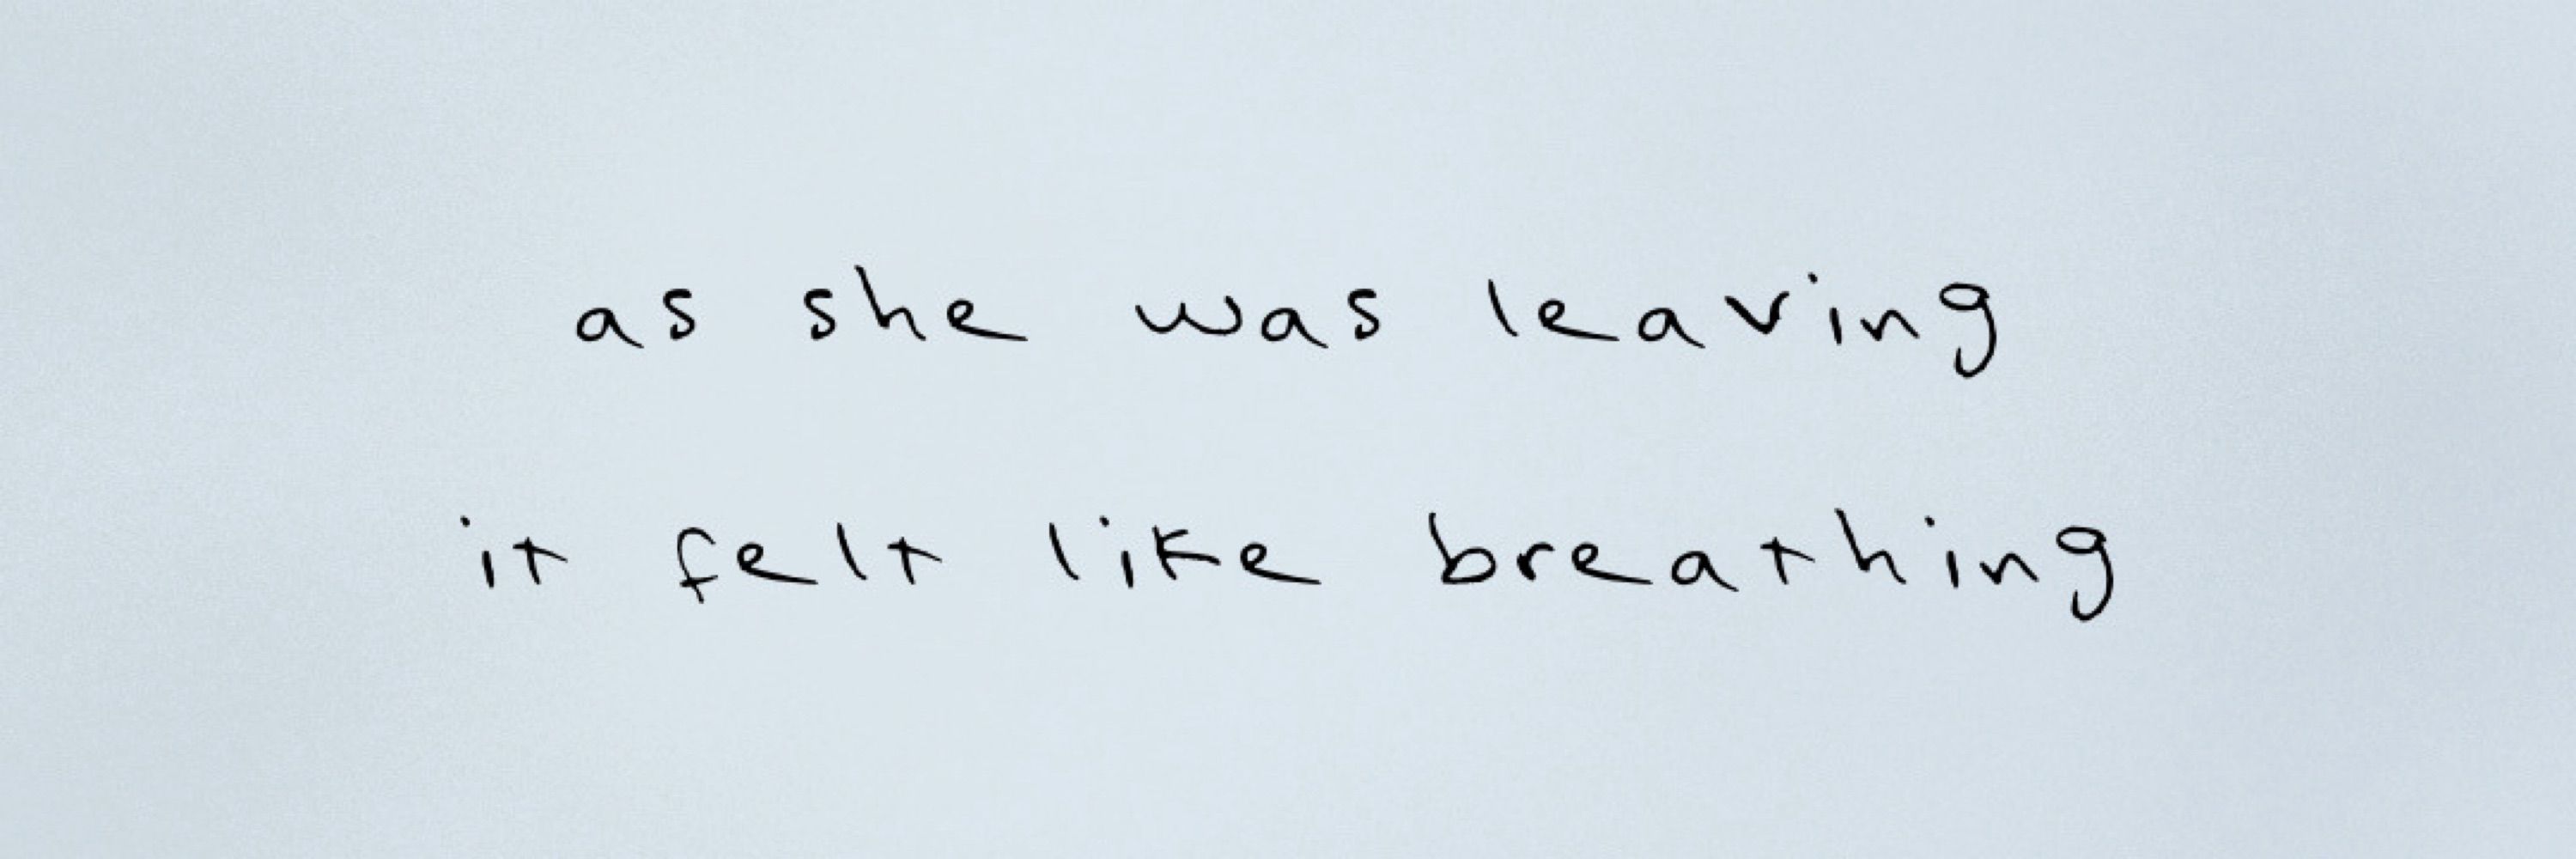 as she was leaving
it felt like breathing